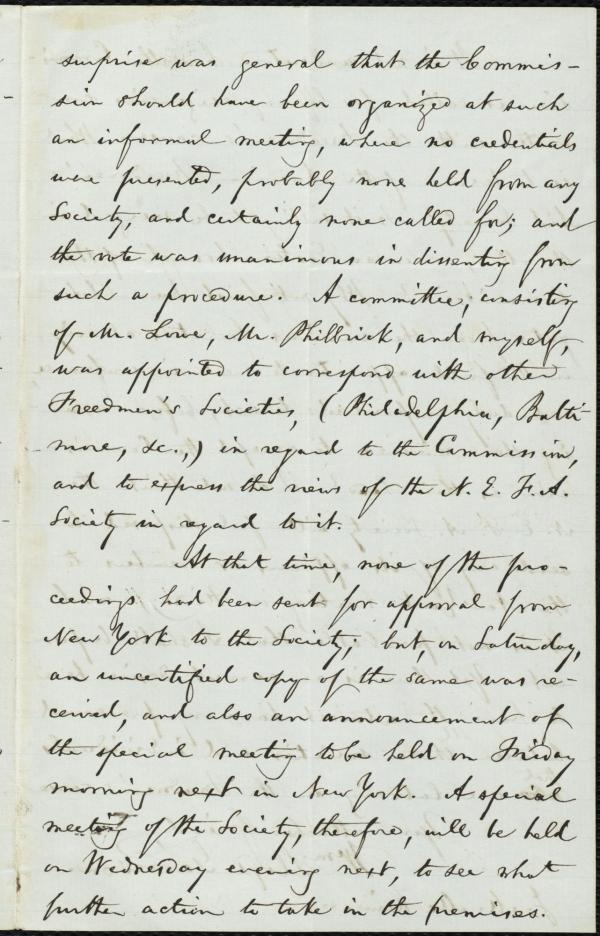 surprise was general that the Commis-
sion should have been organized at such
an informal meeting, where no credentials
were presented, probably none held from any
Society, and certainly none called for; and
the vote was unanimous in dissenting from
such a procedure. A committee, consisting
of Mr. Lowe, Mr. Philbrick, and myself,
was appointed to correspond with other
Freedmen's Societies, (Philadelphia, Balti-
more, &c.,) in regard to the Commission,
and to express the views of the N. E. F. A.
Society in regard to it.
At that time, none of the pro-
ceedings had been sent for approval from
New York to the Society; but, on Saturday,
an uncertified copy of the same was re-
ceived, and also an announcement of
the special meeting to be held on Friday
morning next in New York. A special
meeting of the Society, therefore, will be held
on Wednesday evening next, to see what
further action to take in the premises.